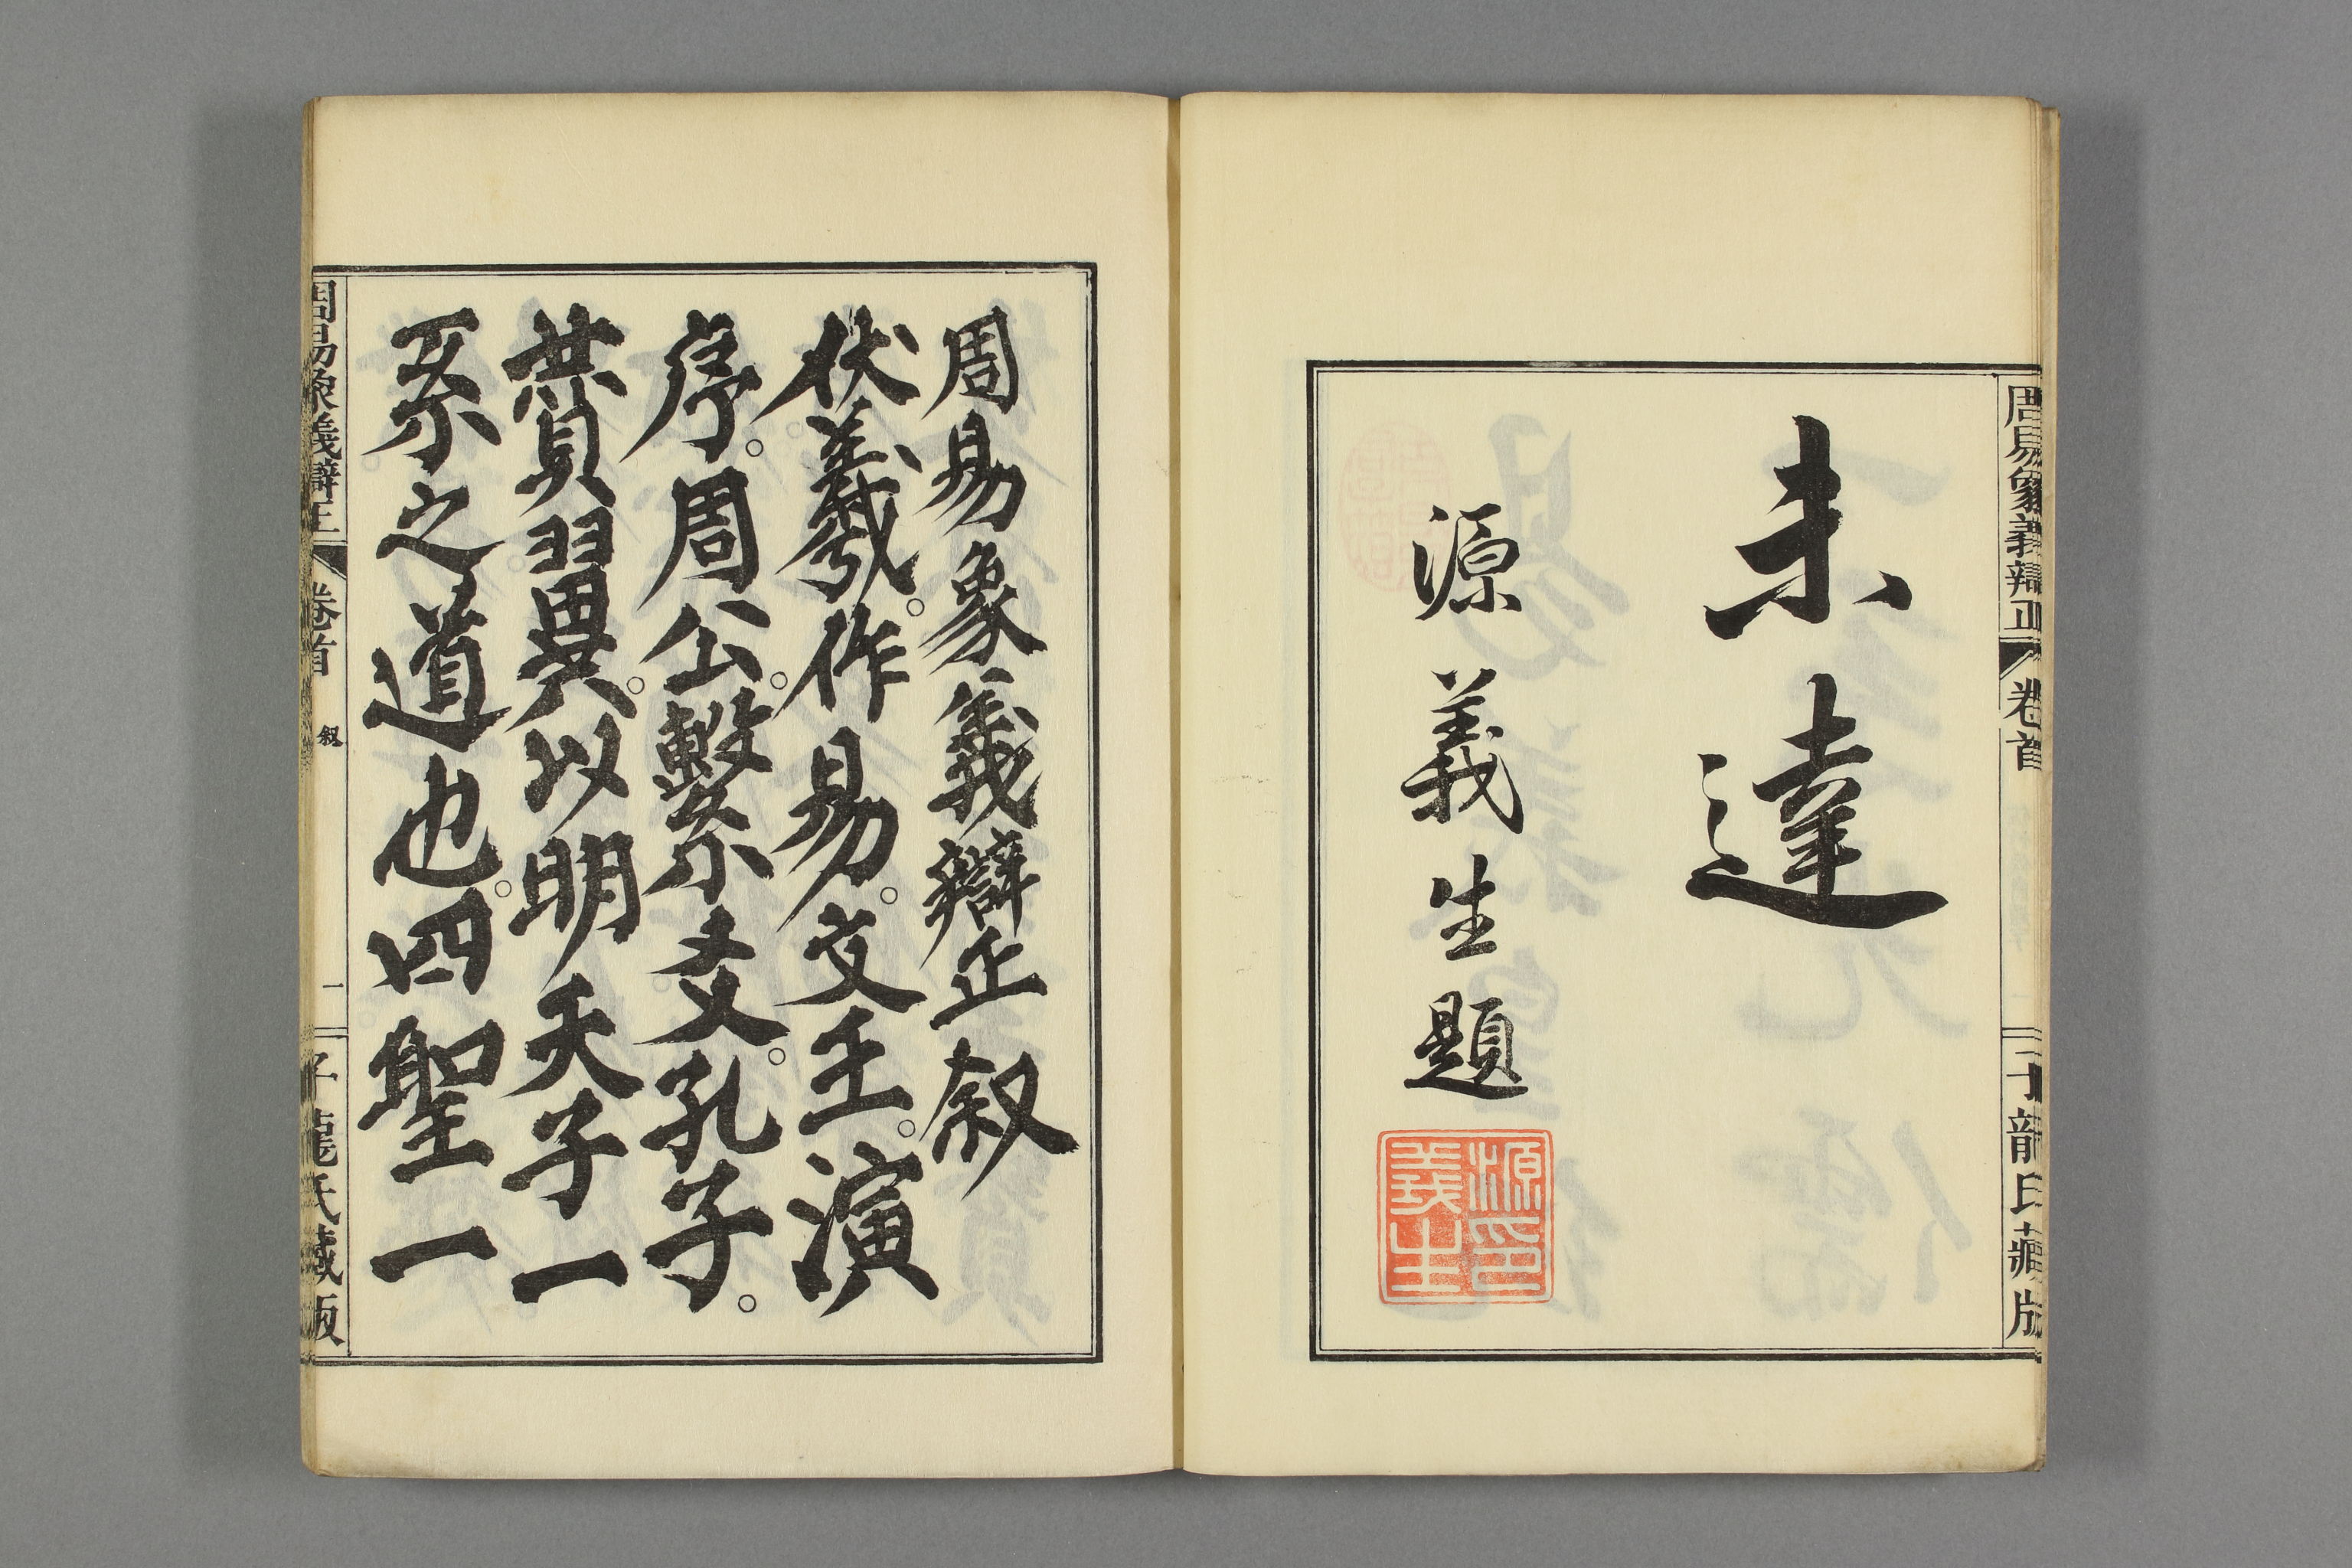 周易象義辯正
卷首
子龍氏藏版
未達
源義生題
源印義生
周易象義辯正叙
伏羲作易文王演
序周公繫爻孔子
賛翼以明天子一
系之道也四聖一
周易象義辯正
卷首
叙
一
子龍氏藏版